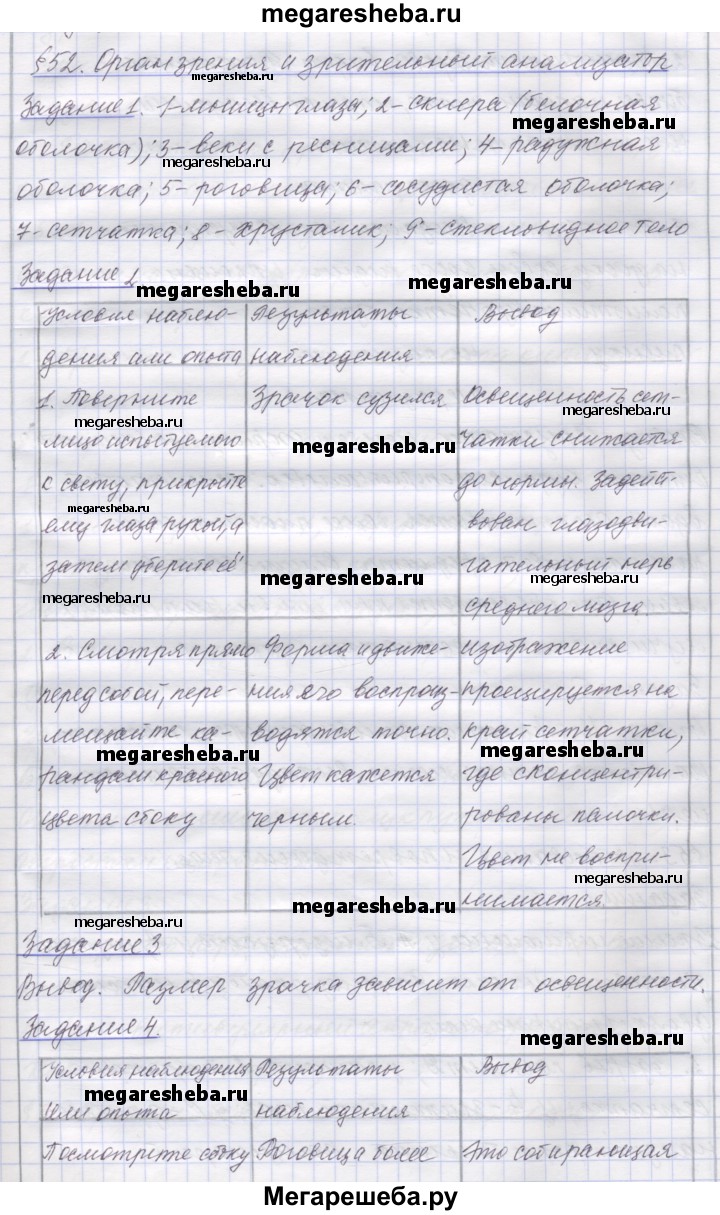 megaresheba.ru
§52. Орган зрения и зрительный анализатор
megaresheba.ru
Задание 1. 1-мышцы глаза; 2- склера (белочная
megaresheba.ru
оболочка); 3- веки с ресницами; 4- радужная
megaresheba.ru
оболочка; 5- роговица; 6- сосудистая оболочка;
7- сетчатка; 8- хрусталик; 9- стекловидное тело
Задание 2
megaresheba.ru
megaresheba.ru
Условия наблю-
дения или опыта
Результаты
наблюдения
Вывод
1. Поверните
megaresheba.ru
лицо испытуемого
к свету, прикройте
ему глаза рукой, а
затем уберите её
megaresheba.ru
Зрачок сузился
megaresheba.ru
megaresheba.ru
Освещенность сет-
megaresheba.ru
чатки снижается
до нормы. Задейст-
вован глазодви-
гательный нерв
megaresheba.ru
среднего мозга.
2. Смотря прямо
перед собой, пере-
мещайте ка-
megaresheba.ru
рандаш красного
цвета сбоку
Форма и движе-
ния его воспроиз-
водятся точно.
Цвет кажется
черным.
Изображение
проецируется на
край сетчатки,
megaresheba.ru
где сконцентри-
рованы палочки.
Цвет не воспри-
megaresheba.ru
нимается.
megaresheba.ru
megaresheba.ru
Задание 3
Вывод. Размер зрачка зависит от освещенности.
Задание 4.
megaresheba.ru
Условия наблюдения
megaresheba.ru
или опыта
Результаты
наблюдения
Вывод
megaresheba.ru
Посмотрите сбоку
Роговица более
Это собирающая
Мегарешеба.ру